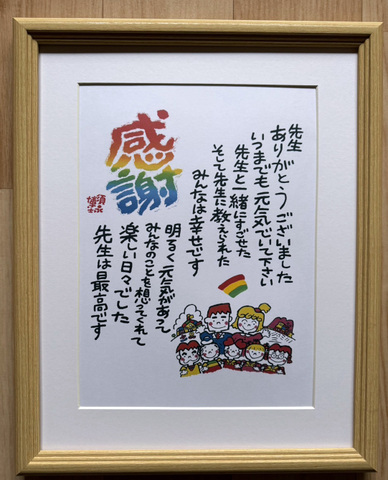 感謝
先生
ありがとうございました
いつまでも元気でいて下さい
先生と一緒にすごせた
そして先生に教えられた
みんなは幸せです
明るく元気があって
みんなのことを想ってくれて
楽しい日々でした
先生は最高です